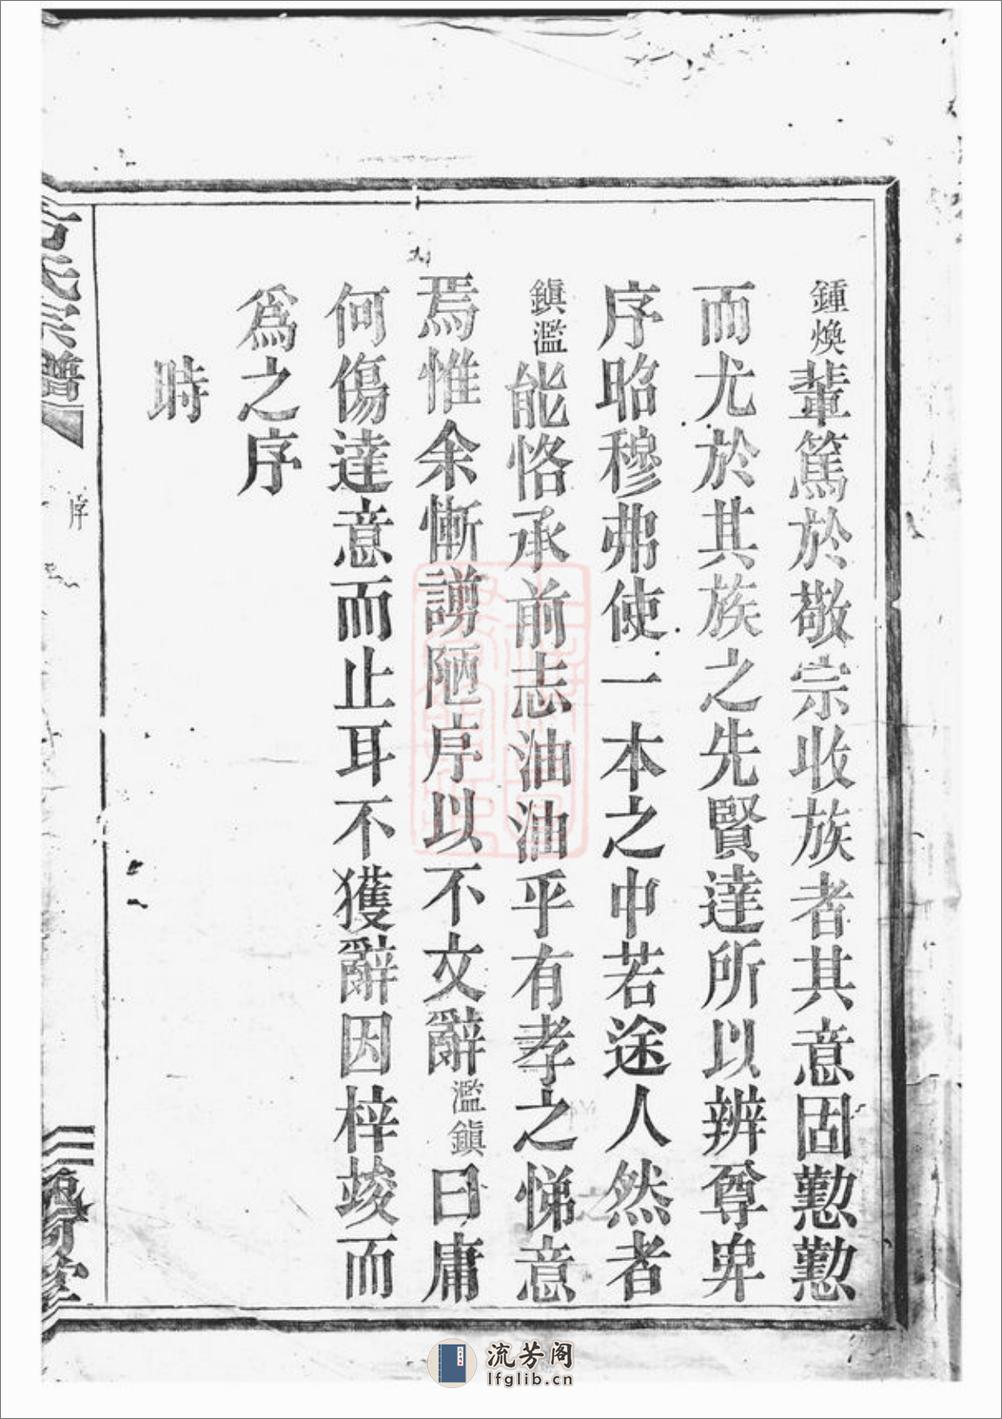 鍾煥輩篤於敬宗收族者其意固懃懃
而尤於其族之先賢達所以辨尊卑
序昭穆弗使一本之中若途人然者
鎭濫能恪承前志油油乎有孝之悌意
焉惟余慚謭陋序以不文辭濫鎭曰庸
何傷達意而止耳不獲辭因梓竣而
爲之序
時
氏宗譜
序
流芳阁
lfglib.cn